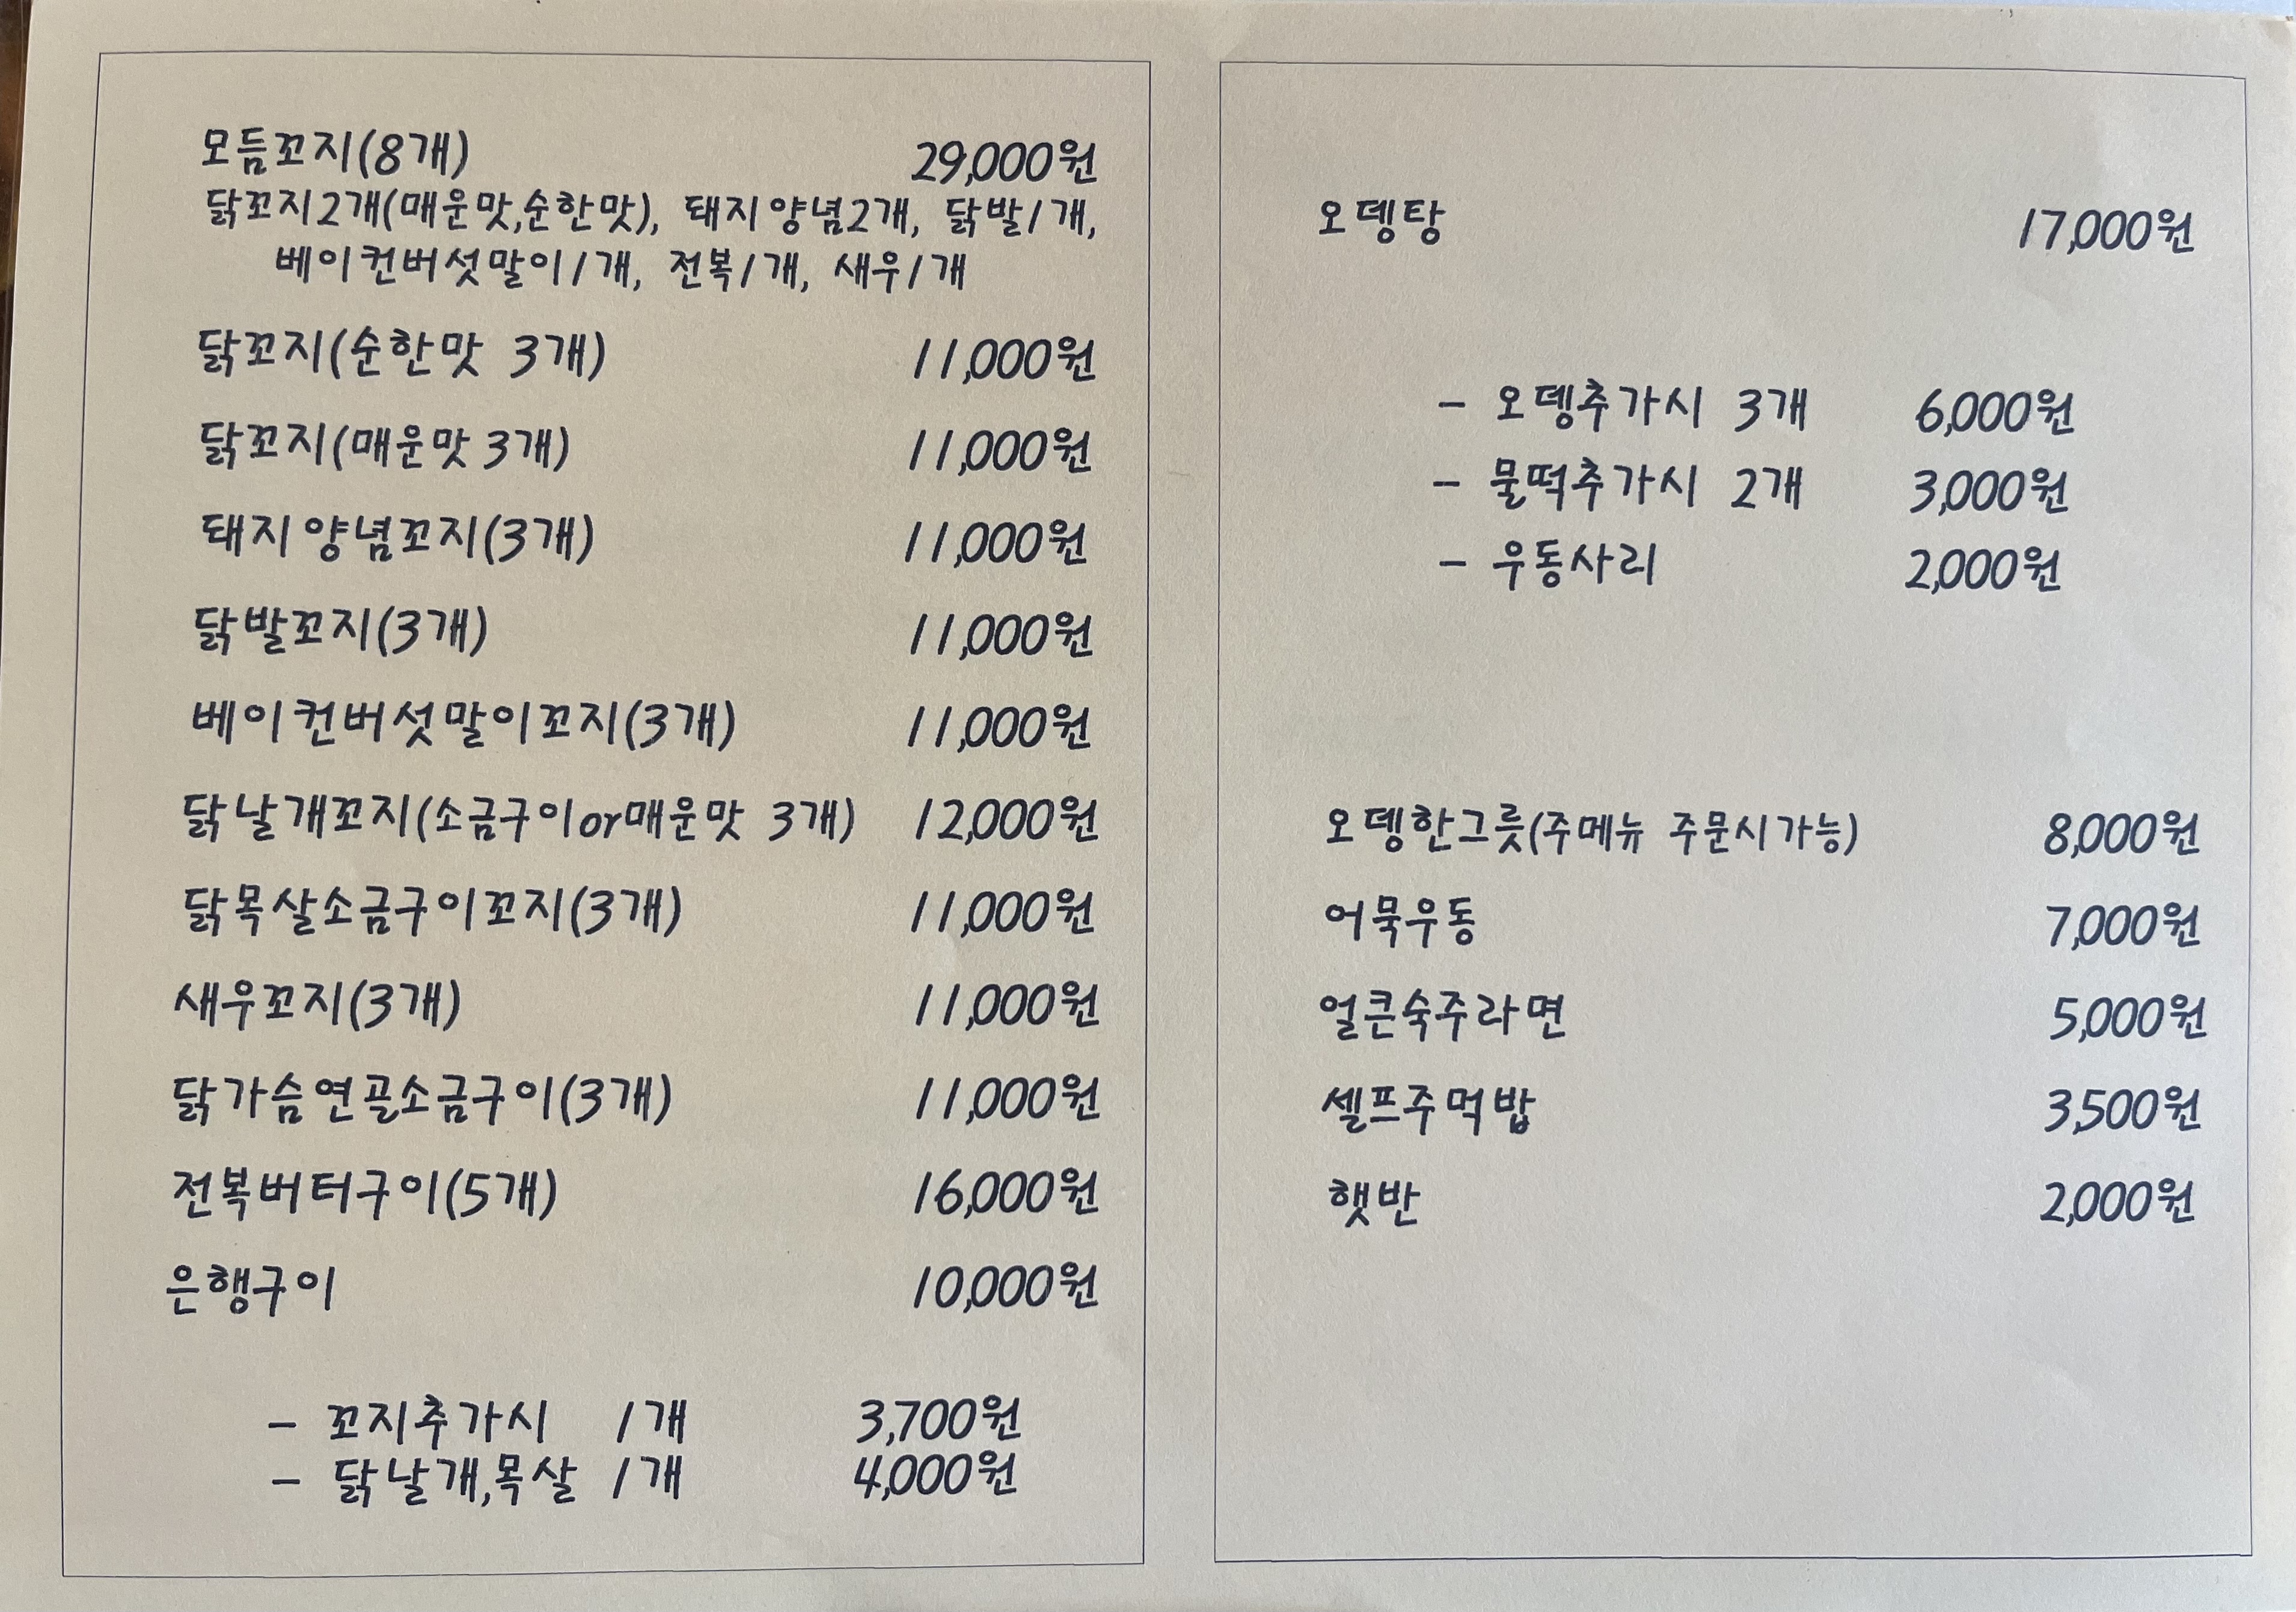 모듬꼬지(8개) 29,000원
닭꼬지2개(매운맛,순한맛), 돼지양념2개, 닭발1개,
베이컨버섯말이1개, 전복1개, 새우1개
닭꼬지(순한맛 3개) 11,000원
닭꼬지(매운맛 3개) 11,000원
돼지양념꼬지(3개) 11,000원
닭발꼬지(3개) 11,000원
베이컨버섯말이꼬지(3개) 11,000원
닭날개꼬지(소금구이or매운맛 3개) 12,000원
닭목살소금구이꼬지(3개) 11,000원
새우꼬지(3개) 11,000원
닭가슴연골소금구이(3개) 11,000원
전복버터구이(5개) 16,000원
은행구이 10,000원
- 꼬지추가시 1개 3,700원
- 닭날개,목살 1개 4,000원
오뎅탕 17,000원
- 오뎅추가시 3개 6,000원
- 물떡추가시 2개 3,000원
- 우동사리 2,000원
오뎅한그릇(주메뉴 주문시가능) 8,000원
어묵우동 7,000원
얼큰숙주라면 5,000원
셀프주먹밥 3,500원
햇반 2,000원